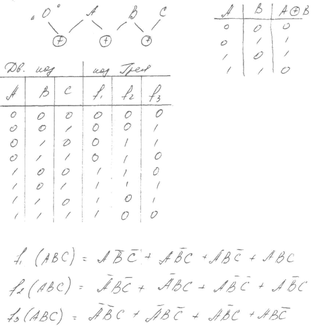 "0" A B C
A B A⊕B
0 0 0
0 1 1
1 0 1
1 1 0
Дв. код код Грея
A B C f1 f2 f3
0 0 0 0 0 0
0 0 1 0 0 1
0 1 0 0 1 1
0 1 1 0 1 0
1 0 0 1 1 0
1 0 1 1 1 1
1 1 0 1 0 1
1 1 1 1 0 0
f1 (ABC) = AB̄C̄ + AB̄C + ABC̄ + ABC
f2 (ABC) = ĀBC̄ + ĀBC + AB̄C̄ + AB̄C
f3 (ABC) = ĀB̄C + ĀBC̄ + AB̄C + ABC̄